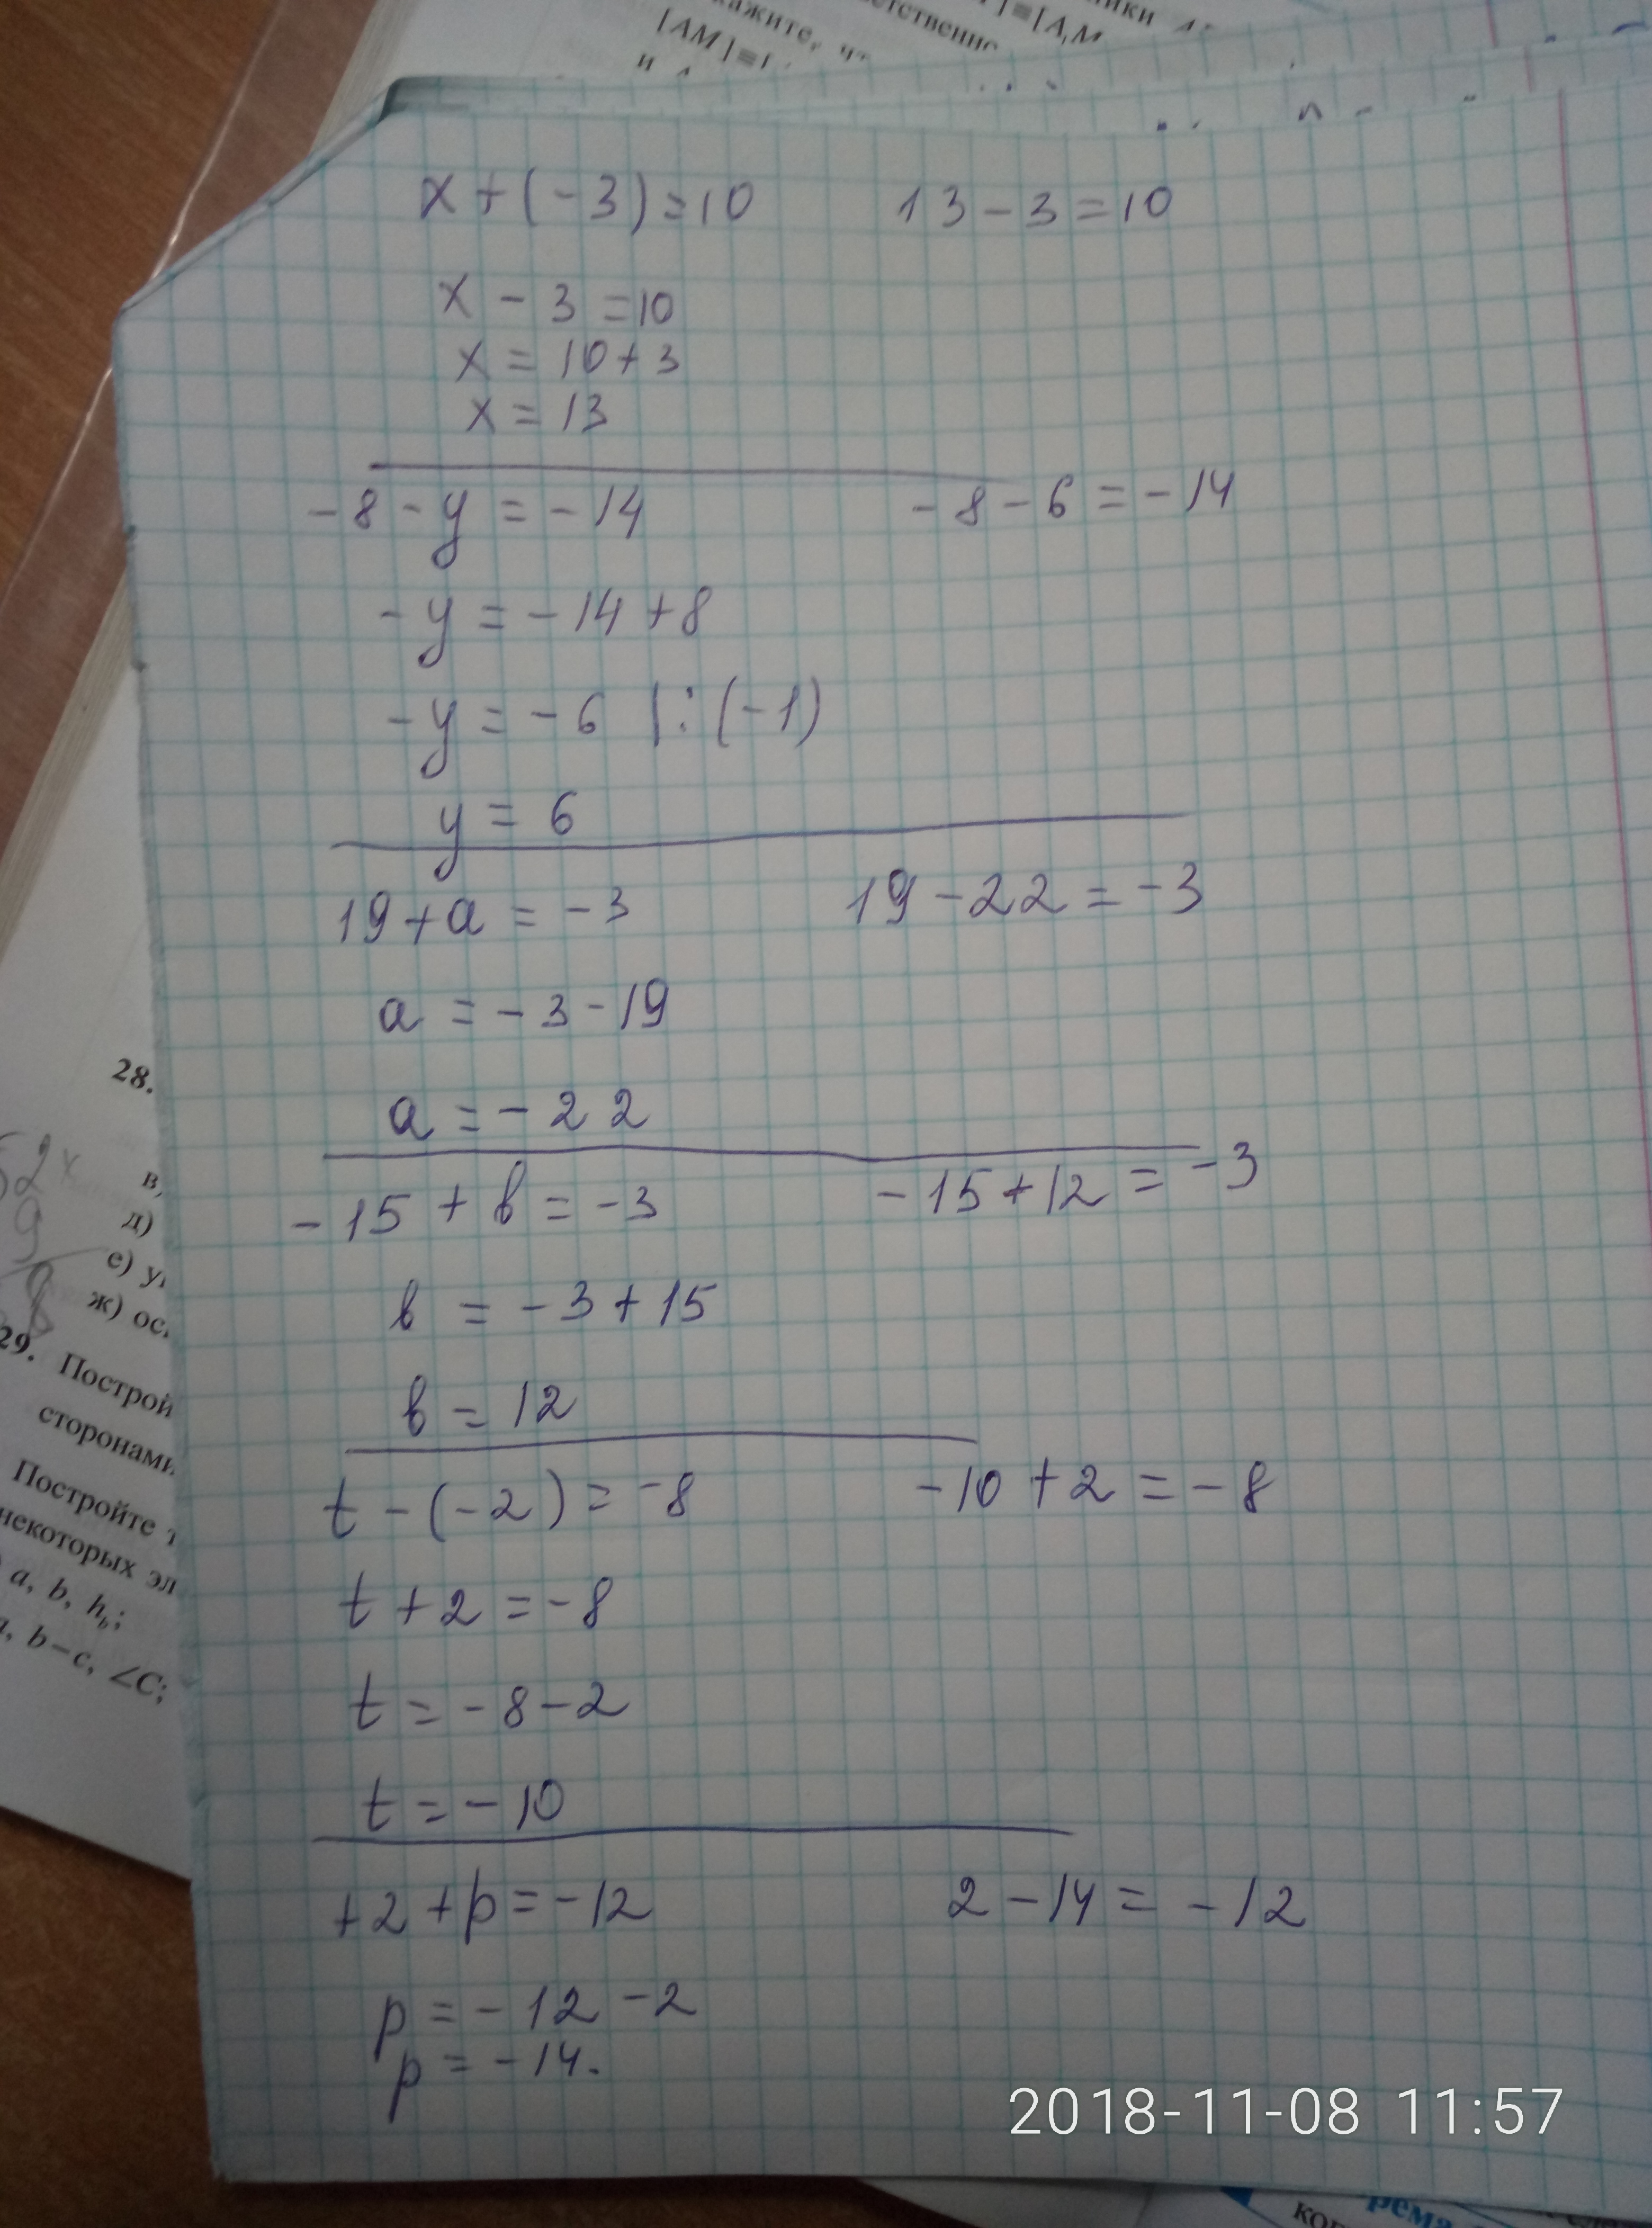 [AM]≡[
x + (-3) = 10 13 - 3 = 10
x - 3 = 10
x = 10 + 3
x = 13
-8 - y = -14 -8 - 6 = -14
-y = -14 + 8
-y = -6 |:(-1)
y = 6
19 + a = -3 19 - 22 = -3
a = -3 - 19
a = -22
-15 + b = -3 -15 + 12 = -3
b = -3 + 15
b = 12
t - (-2) = -8 -10 + 2 = -8
t + 2 = -8
t = -8 - 2
t = -10
+2 + p = -12 2 - 14 = -12
p = -12 - 2
p = -14.
28.
в,
д)
е)
ж)
29.
сторонами
Постройте
некоторых
a, b, h_b;
b-c, ∠C;
2018-11-08 11:57